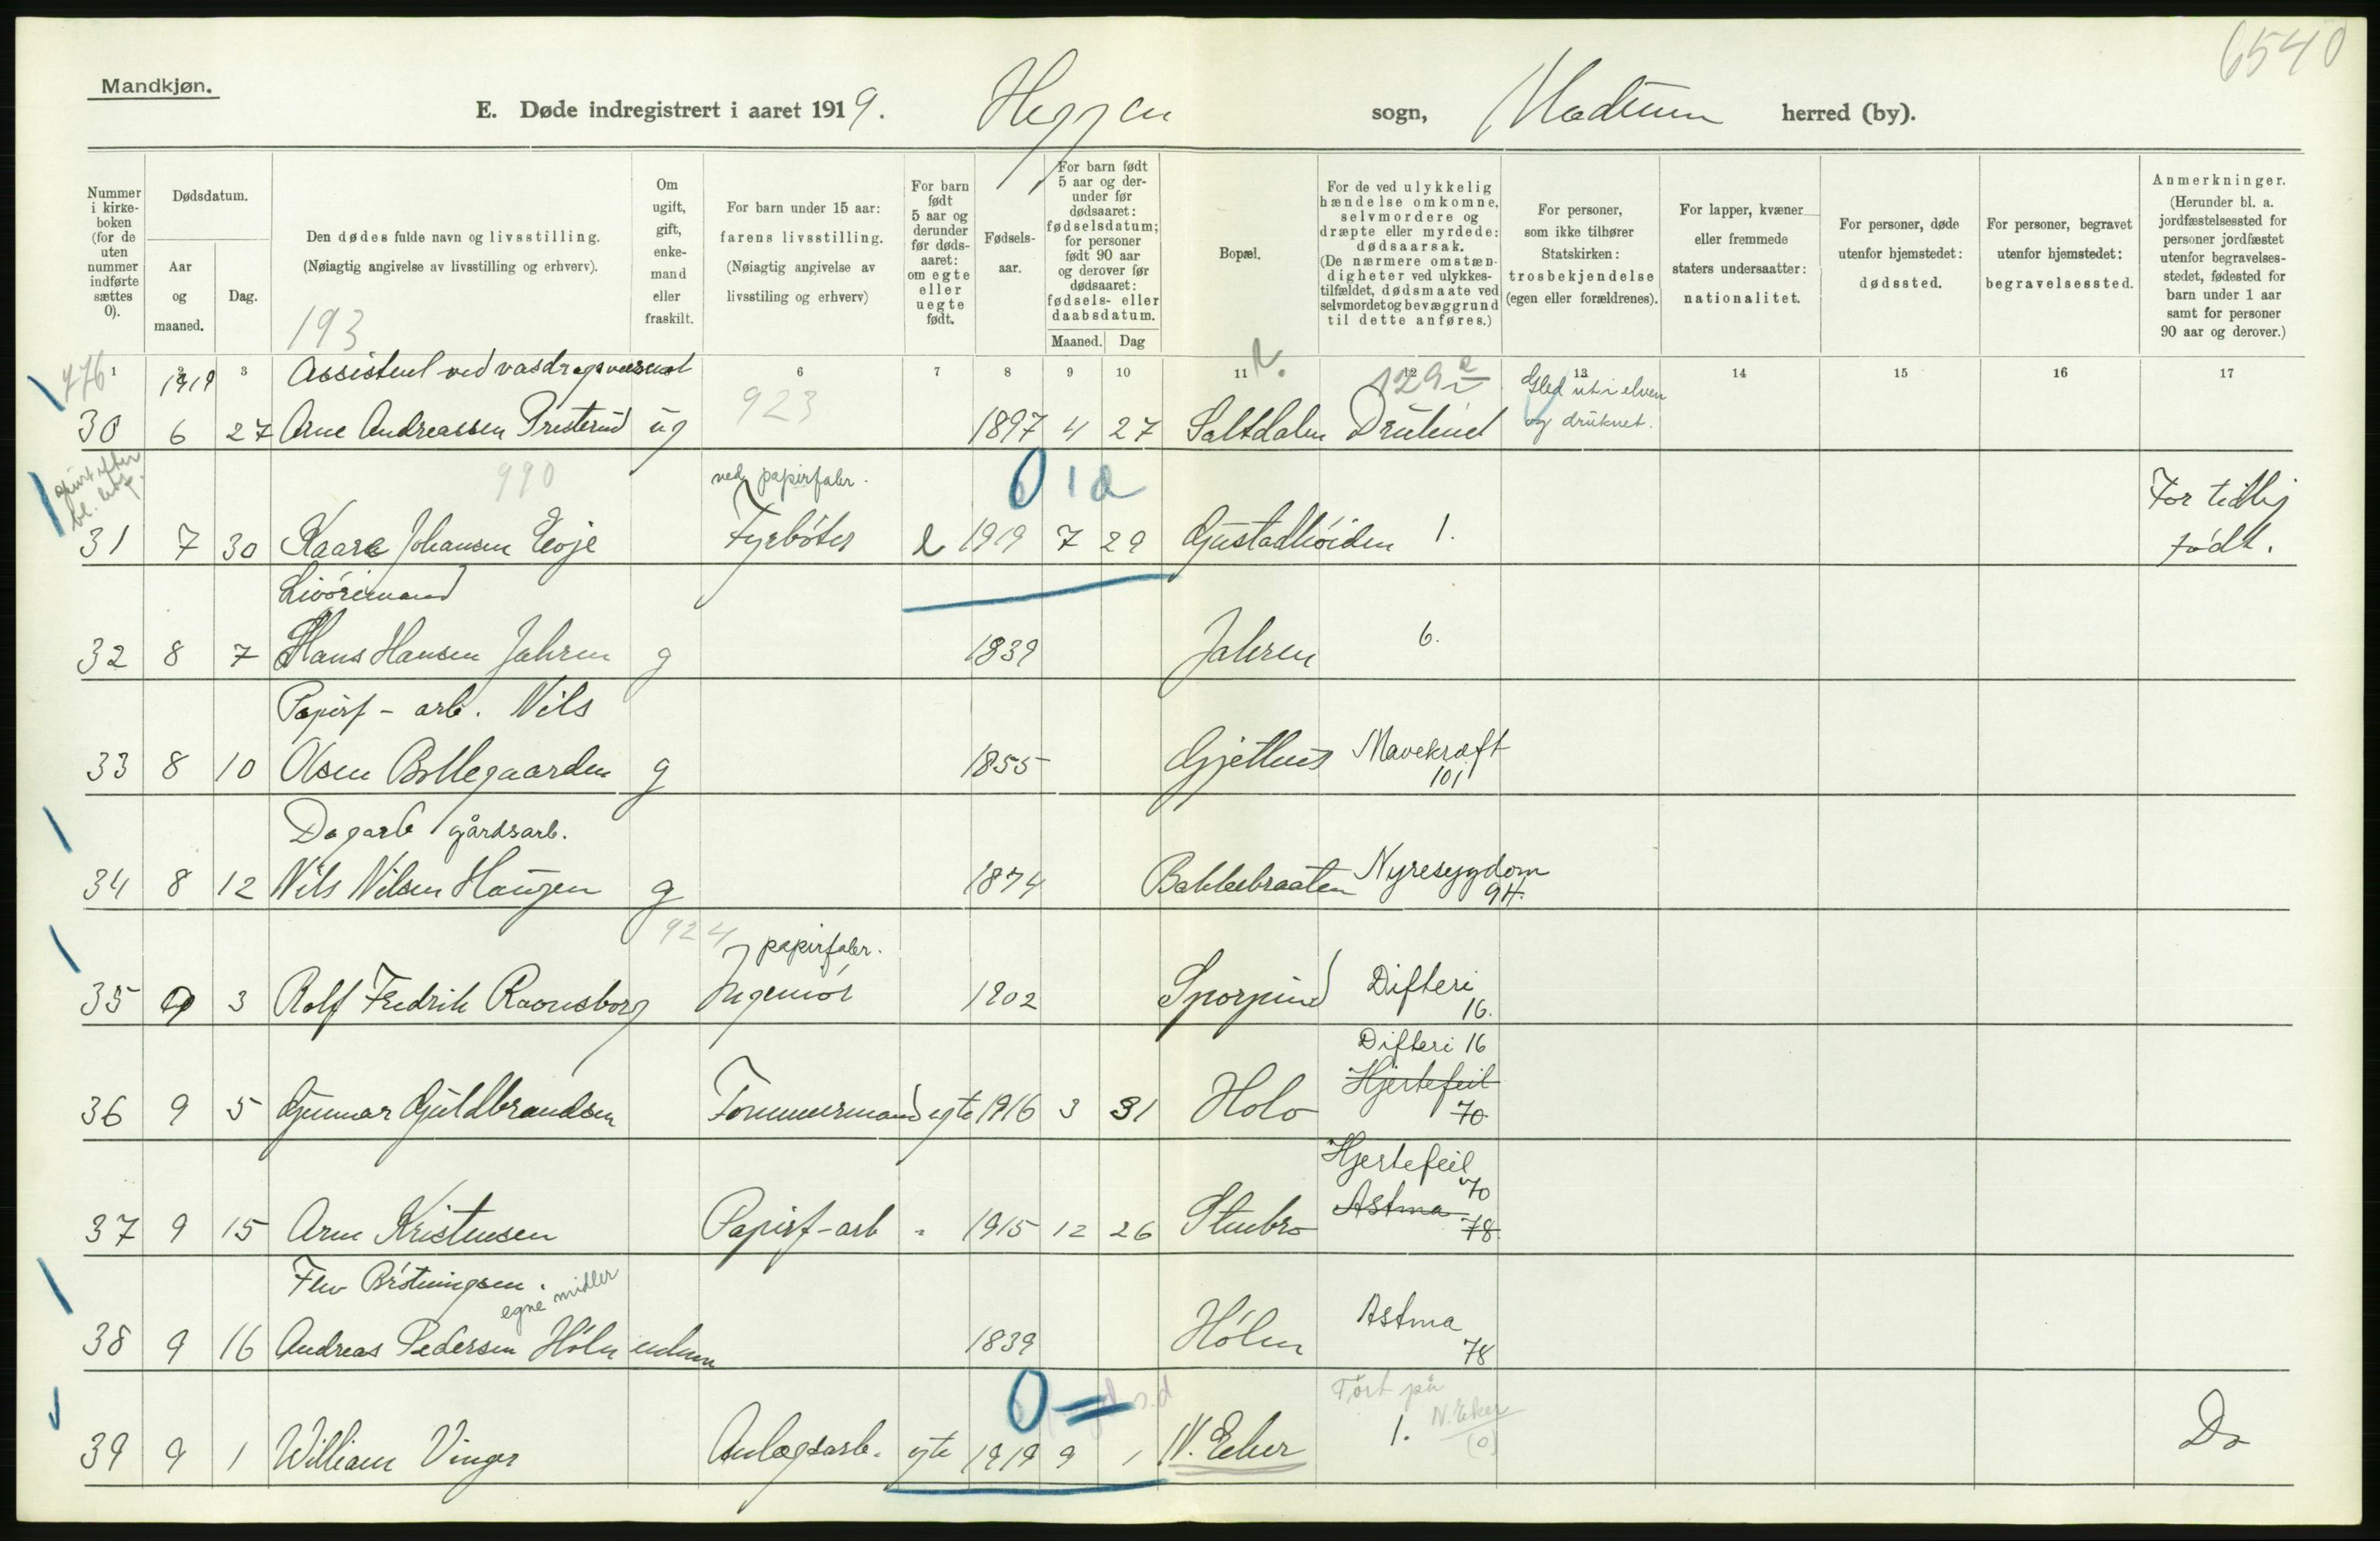 6540
Mandkjøn.
E. Døde indregistrert i aaret 1919. Heggen sogn, Modum herred (by).
Nummer i kirke- boken (for de uten nummer indførte sættes 0).
Dødsdatum.
Aar og maaned.
Dag.
Den dødes fulde navn og livsstilling.
(Nøiagtig angivelse av livsstilling og erhverv).
193
Om ugift, gift, enke- mand eller fraskilt.
For barn under 15 aar: farens livsstilling.
(Nøiagtig angivelse av livsstiling og erhverv)
For barn født 5 aar og derunder før døds- aaret: om egte eller uegte født.
Fødsels- aar.
For barn født 5 aar og der- under før dødsaaret: fødselsdatum; for personer født 90 aar og derover før dødsaaret: fødsels- eller daabsdatum.
Maaned. Dag
Bopæl.
For de ved ulykkelig hændelse omkomne, selvmordere og dræpte eller myrdede: dødsaarsak.
(De nærmere omstæn- digheter ved ulykkes- tilfældet, dødsmaate ved selvmordet og bevæggrund til dette anføres.)
For personer, som ikke tilhører Statskirken: trosbekjendelse (egen eller forældrenes).
For lapper, kvæner eller fremmede staters undersaatter: nationalitet.
For personer, døde utenfor hjemstedet: dødssted.
For personer, begravet utenfor hjemstedet: begravelsessted.
Anmerkninger.
(Herunder bl. a. jordfæstelsessted for personer jordfæstet utenfor begravelses- stedet, fødested for barn under 1 aar samt for personer 90 aar og derover.)
1 2 3 6 7 8 9 10 11 12 13 14 15 16 17
476 1919 Assistent ved vasdragsvæsenet 923 129 Gled ut i elven
30 6 27 Arne Andreassen Pristerud ug 1897 4 27 Saltdalen Druknet og druknet.
990 ved papirfabr. 0 1 d For tidlig
31 7 30 Kaare Johansen Eoje Fyrbøter e 1919 7 29 Gustadhøiden 1. født.
32 8 7 Hans Hansen Jahren g 1839 Jahren 6.
Papirf - arb. Nils
33 8 10 Olsen Bollegaarden g 1855 Gjethus Mavekræft 101
Dagarb gårdsarb.
34 8 12 Nils Nilsen Haugen g 1874 Bakkebraaten Nyresygdom 94.
924 papirfabr.
35 9 3 Rolf Fredrik Ravnsborg Ingeniør 1902 Sporpind Difteri 16.
Difteri 16
36 9 5 Gunnar Guldbrandsen Tømmermand egte 1916 3 31 Holo Hjertefeil 70
Hjertefeil 70
37 9 15 Arne Kristensen Papirf-arb " 1915 12 26 Stenbro Astma 78.
egne midler
38 9 16 Andreas Pedersen Hólm enkem 1839 Hólm Astma 78
0 = Ført på N. Eker (0)
39 9 1 William Vinger Anlægsarb. egte 1919 9 1 N. Eker 1. Do